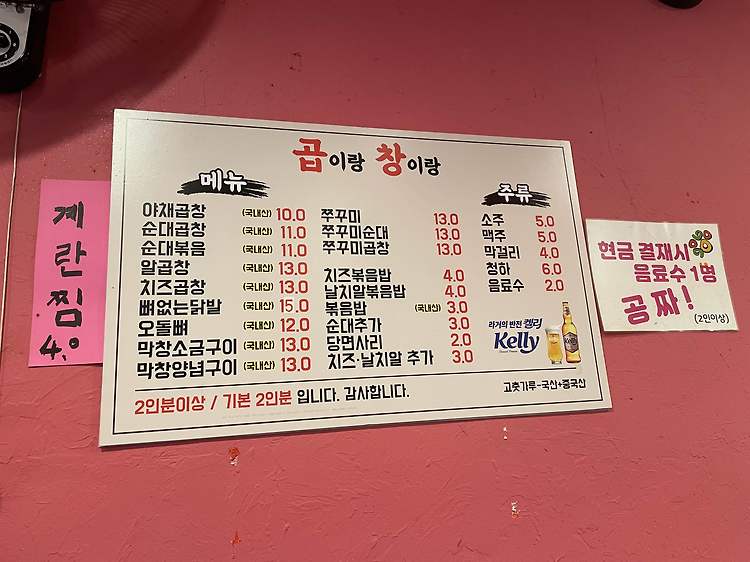 곱이랑 창이랑
메뉴
야채곱창 (국내산) 10.0
순대곱창 (국내산) 11.0
순대볶음 (국내산) 11.0
알곱창 (국내산) 13.0
치즈곱창 (국내산) 13.0
뼈없는닭발 (국내산) 15.0
오돌뼈 (국내산) 12.0
막창소금구이 (국내산) 13.0
막창양념구이 (국내산) 13.0
쭈꾸미 13.0
쭈꾸미순대 13.0
쭈꾸미곱창 13.0
치즈볶음밥 4.0
날치알볶음밥 4.0
볶음밥 (국내산) 3.0
순대추가 3.0
당면사리 2.0
치즈·날치알 추가 3.0
주류
소주 5.0
맥주 5.0
막걸리 4.0
청하 6.0
음료수 2.0
라거의 반전 켈리
Kelly
2인분이상 / 기본 2인분 입니다. 감사합니다.
고춧가루-국산+중국산
계란찜
4.0
현금 결재시
음료수 1명
공짜!
(2인이상)